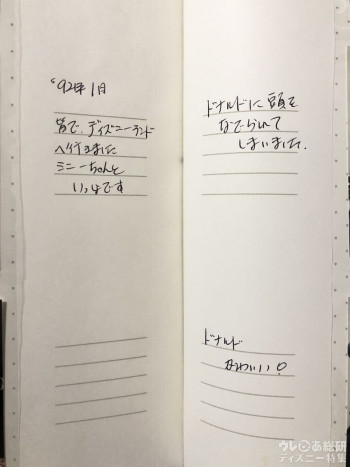 '92年1月
皆で、ディズニーランド
へ行きました
ミニーちゃんと
いっしょです
ドナルドに頭を
なでられて
しまいました。
ドナルド
かわいい!
ウレぴあ総研
ディズニー特集